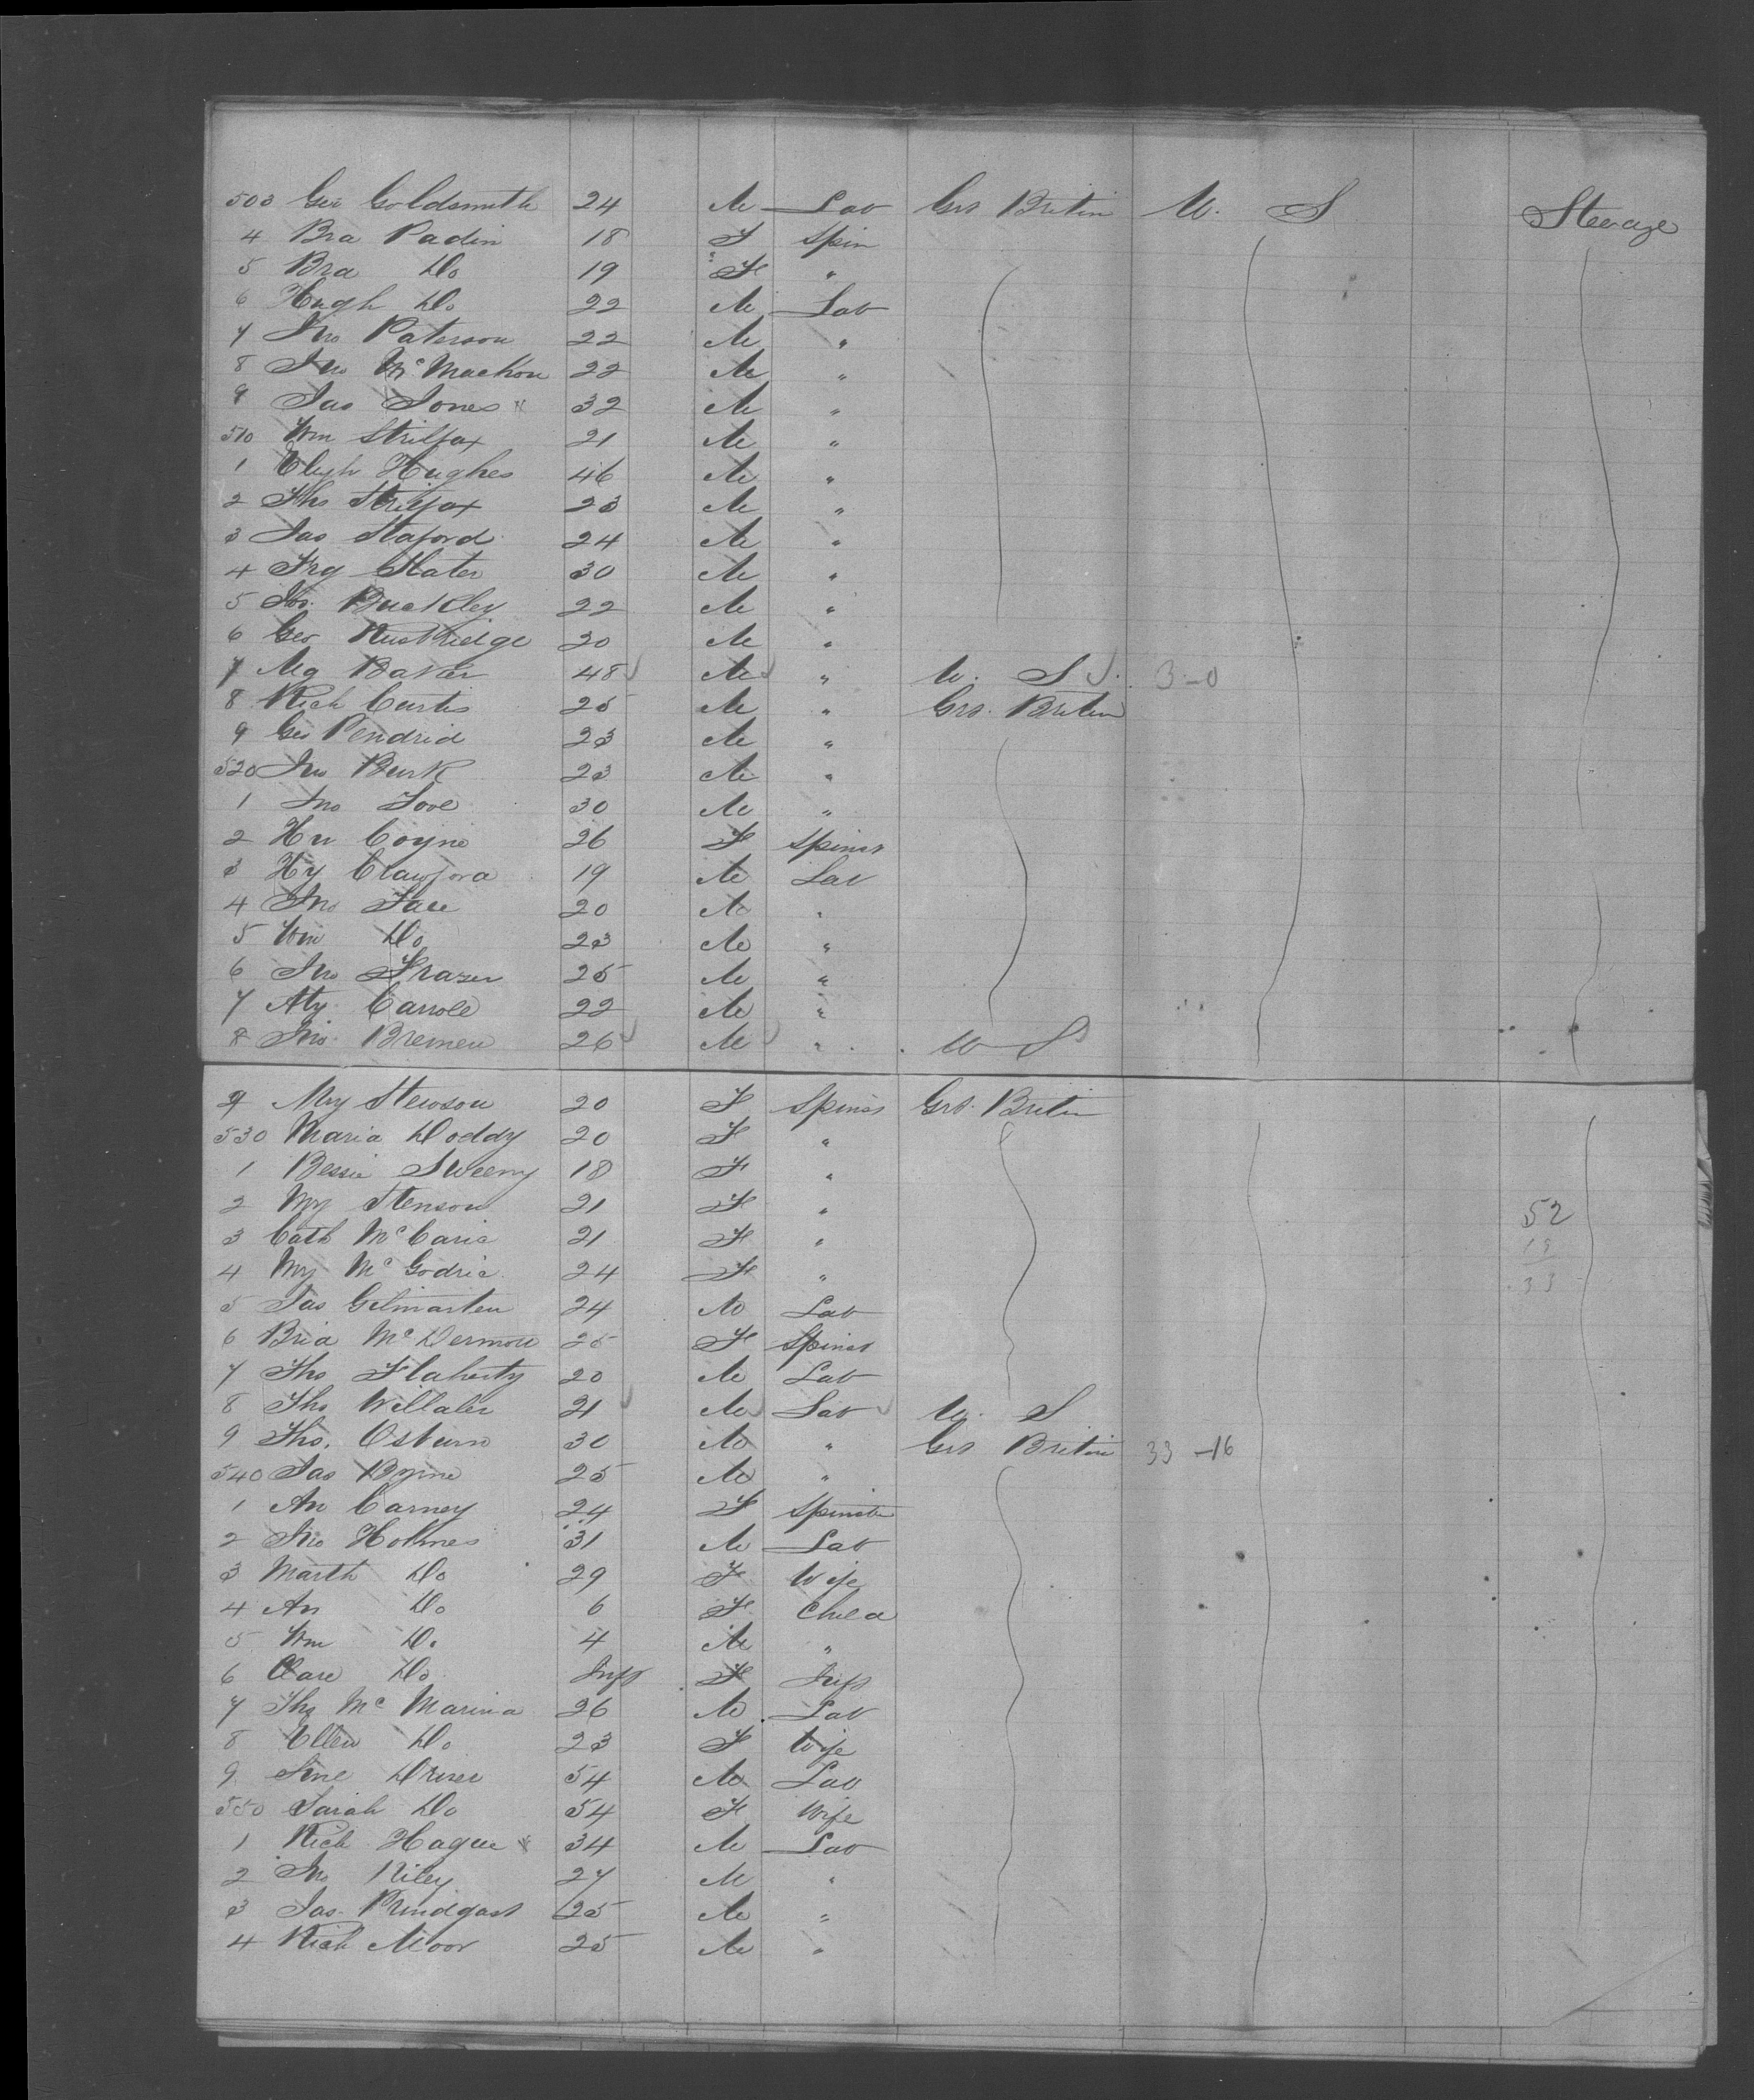 503 Geo Goldsmith 24 M Lab Grt Britin U. S Steerage
4 Bra Padin 18 F Spin
5 Bra Do 19 F "
6 Hugh Do 22 M Lab
7 Jno Paterson 22 M "
8 Jno McMackon 22 M "
9 Jas Jones 32 M "
510 Wm Strilfox 21 M "
1 Hughes 46 M "
2 Ths Strilfox 23 M "
3 Jas Staford 24 M "
4 Slater 30 M "
5 Jos. Buckley 22 M "
6 Geo 20 M "
7 Mg Baker 48 M " U. S. 3-0
8 Rich Curtis 25 M " Grt. Britin
9 Geo Pendrid 23 M "
520 Jno Burk 23 M "
1 Jno Love 30 M "
2 Coyne 26 F Spinst
3 Hy Crawford 19 M Lab
4 Jno 20 M "
5 Wm Do 23 M "
6 Jno Frazer 25 M "
7 Carrole 22 M "
8 Jno. Bremen 26 M " U S
9 My Stewson 20 F Spinst Grt. Britin
530 Maria Doddy 20 F "
1 Bessie Sweeny 18 F "
2 My Stenson 21 F " 52
3 Cath McCaria 21 F " 19
4 My McGodric 24 F " 33
5 Jas Gilmarten 24 M Lab
6 Bria McDermott 25 F Spinst
7 Ths Flaherty 20 M Lab
8 Ths Willaler 21 M Lab U. S
9 Ths. Osburn 30 M " Grt Britin 33-16
540 Jas Byrne 25 M "
1 An Carney 24 F Spinste
2 Jno Holmes 31 M Lab
3 Marth Do 29 F Wife
4 An Do 6 F Child
5 Wm Do 4 M "
6 Clare Do Inft F Inft
7 Ths McMarina 26 M Lab
8 Ellen Do 23 F Wife
9 Driver 54 M Lab
550 Sarah Do 54 F Wife
1 Rich Hague 34 M Lab
2 Jno Riley 27 M "
3 Jas. Prindgast 25 M "
4 Rich Moor 25 M "